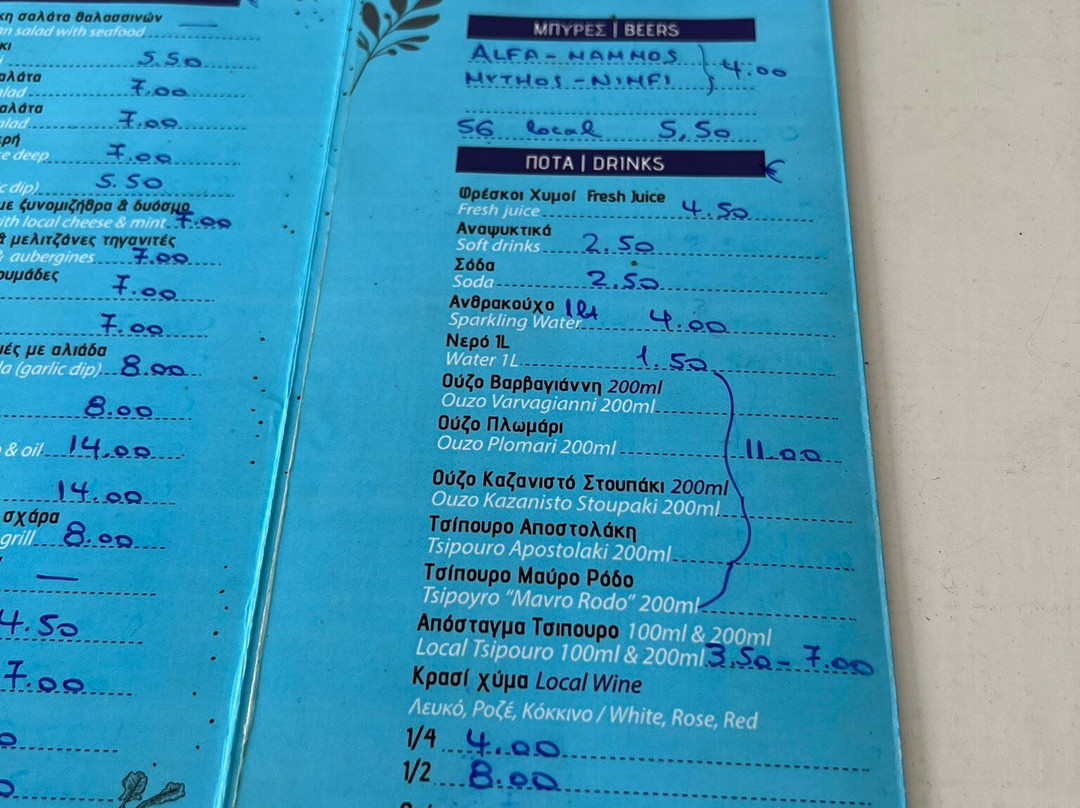 κη σαλάτα θαλασσινών
an salad with seafood
κι
5.50
αλάτα
alad 7.00
αλάτα
alad 7.00
ρή
e deep 7.00
c dip) 5.50
με ξυνομιζήθρα & δυόσμο
ith local cheese & mint 7.00
& μελιτζάνες τηγανιτές
& aubergines 7.00
ουμάδες
7.00
7.00
ιές με αλιάδα
la (garlic dip) 8.00
8.00
& oil 14.00
14.00
σχάρα
grill 8.00
—
4.50
7.00
ΜΠΥΡΕΣ | BEERS
ALFA - MAMMOS
MYTHOS - NIMFI 4.00
56 local 5,50
ΠΟΤΑ | DRINKS €
Φρέσκοι Χυμοί Fresh Juice
Fresh juice 4.50
Αναψυκτικά
Soft drinks 2.50
Σόδα
Soda 2.50
Ανθρακούχο 1lt
Sparkling Water 4.00
Νερό 1L
Water 1L 1.50
Ούζο Βαρβαγιάννη 200ml
Ouzo Varvagianni 200ml
Ούζο Πλωμάρι
Ouzo Plomari 200ml 11.00
Ούζο Καζανιστό Στουπάκι 200ml
Ouzo Kazanisto Stoupaki 200ml
Τσίπουρο Αποστολάκη
Tsipouro Apostolaki 200ml
Τσίπουρο Μαύρο Ρόδο
Tsipoyro "Mavro Rodo" 200ml
Απόσταγμα Τσιπουρο 100ml & 200ml
Local Tsipouro 100ml & 200ml 3.50 - 7.00
Κρασί χύμα Local Wine
Λευκό, Ροζέ, Κόκκινο / White, Rose, Red
1/4 4.00
1/2 8.00